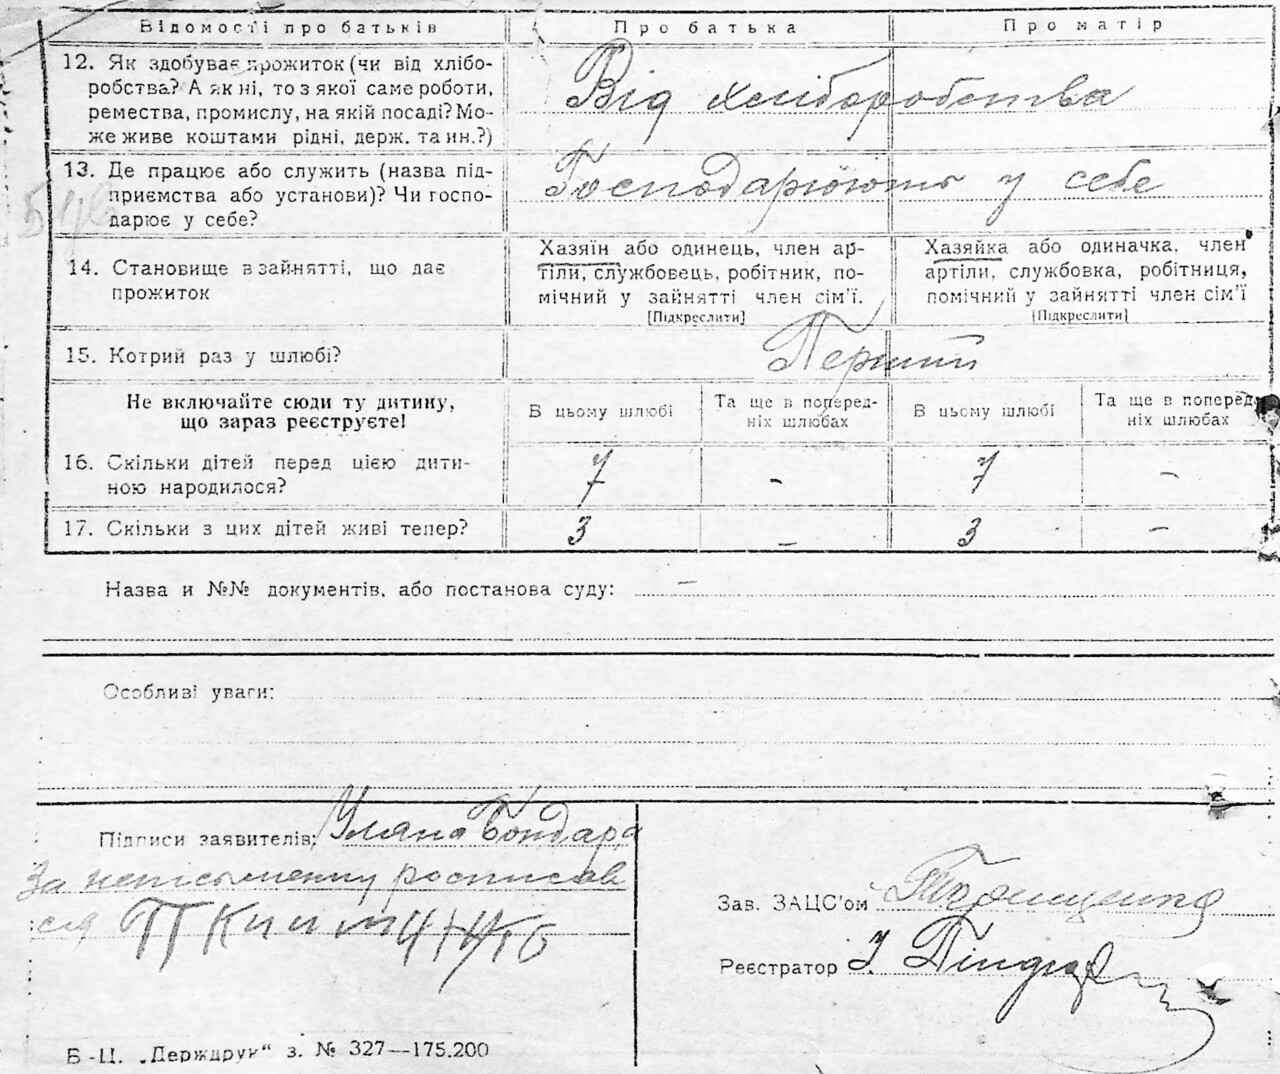 Відомості про батьків Про батька Про матір
12. Як здобуває прожиток (чи від хлібо-
робства? А як ні, то з якої саме роботи,
ремества, промислу, на якій посаді? Мо-
же живе коштами рідні, держ. та ин.?)
Від хліборобства
13. Де працює або служить (назва під-
приємства або установи)? Чи госпо-
дарює у себе?
Господарюють у себе
14. Становище в зайнятті, що дає
прожиток
Хазяїн або одинець, член ар-
тіли, службовець, робітник, по-
мічний у зайнятті член сім'ї.
[Підкреслити]
Хазяйка або одиначка, член
артіли, службовка, робітниця,
помічний у зайнятті член сім'ї
[Підкреслити]
15. Котрий раз у шлюбі?
Перший
Не включайте сюди ту дитину,
що зараз реєструєте!
В цьому шлюбі
Та ще в поперед-
ніх шлюбах
В цьому шлюбі
Та ще в поперед-
ніх шлюбах
16. Скільки дітей перед цією дити-
ною народилося?
7 - 7 -
17. Скільки з цих дітей живі тепер?
3 - 3 -
Назва и №№ документів, або постанова суду: -
Особливі уваги:
Підписи заявителів: Уляна Бондара
За неписьменну росписав
ся
Зав. ЗАЦС'ом
Реєстратор І
Б-Ц. „Держдрук“ з. № 327—175.200